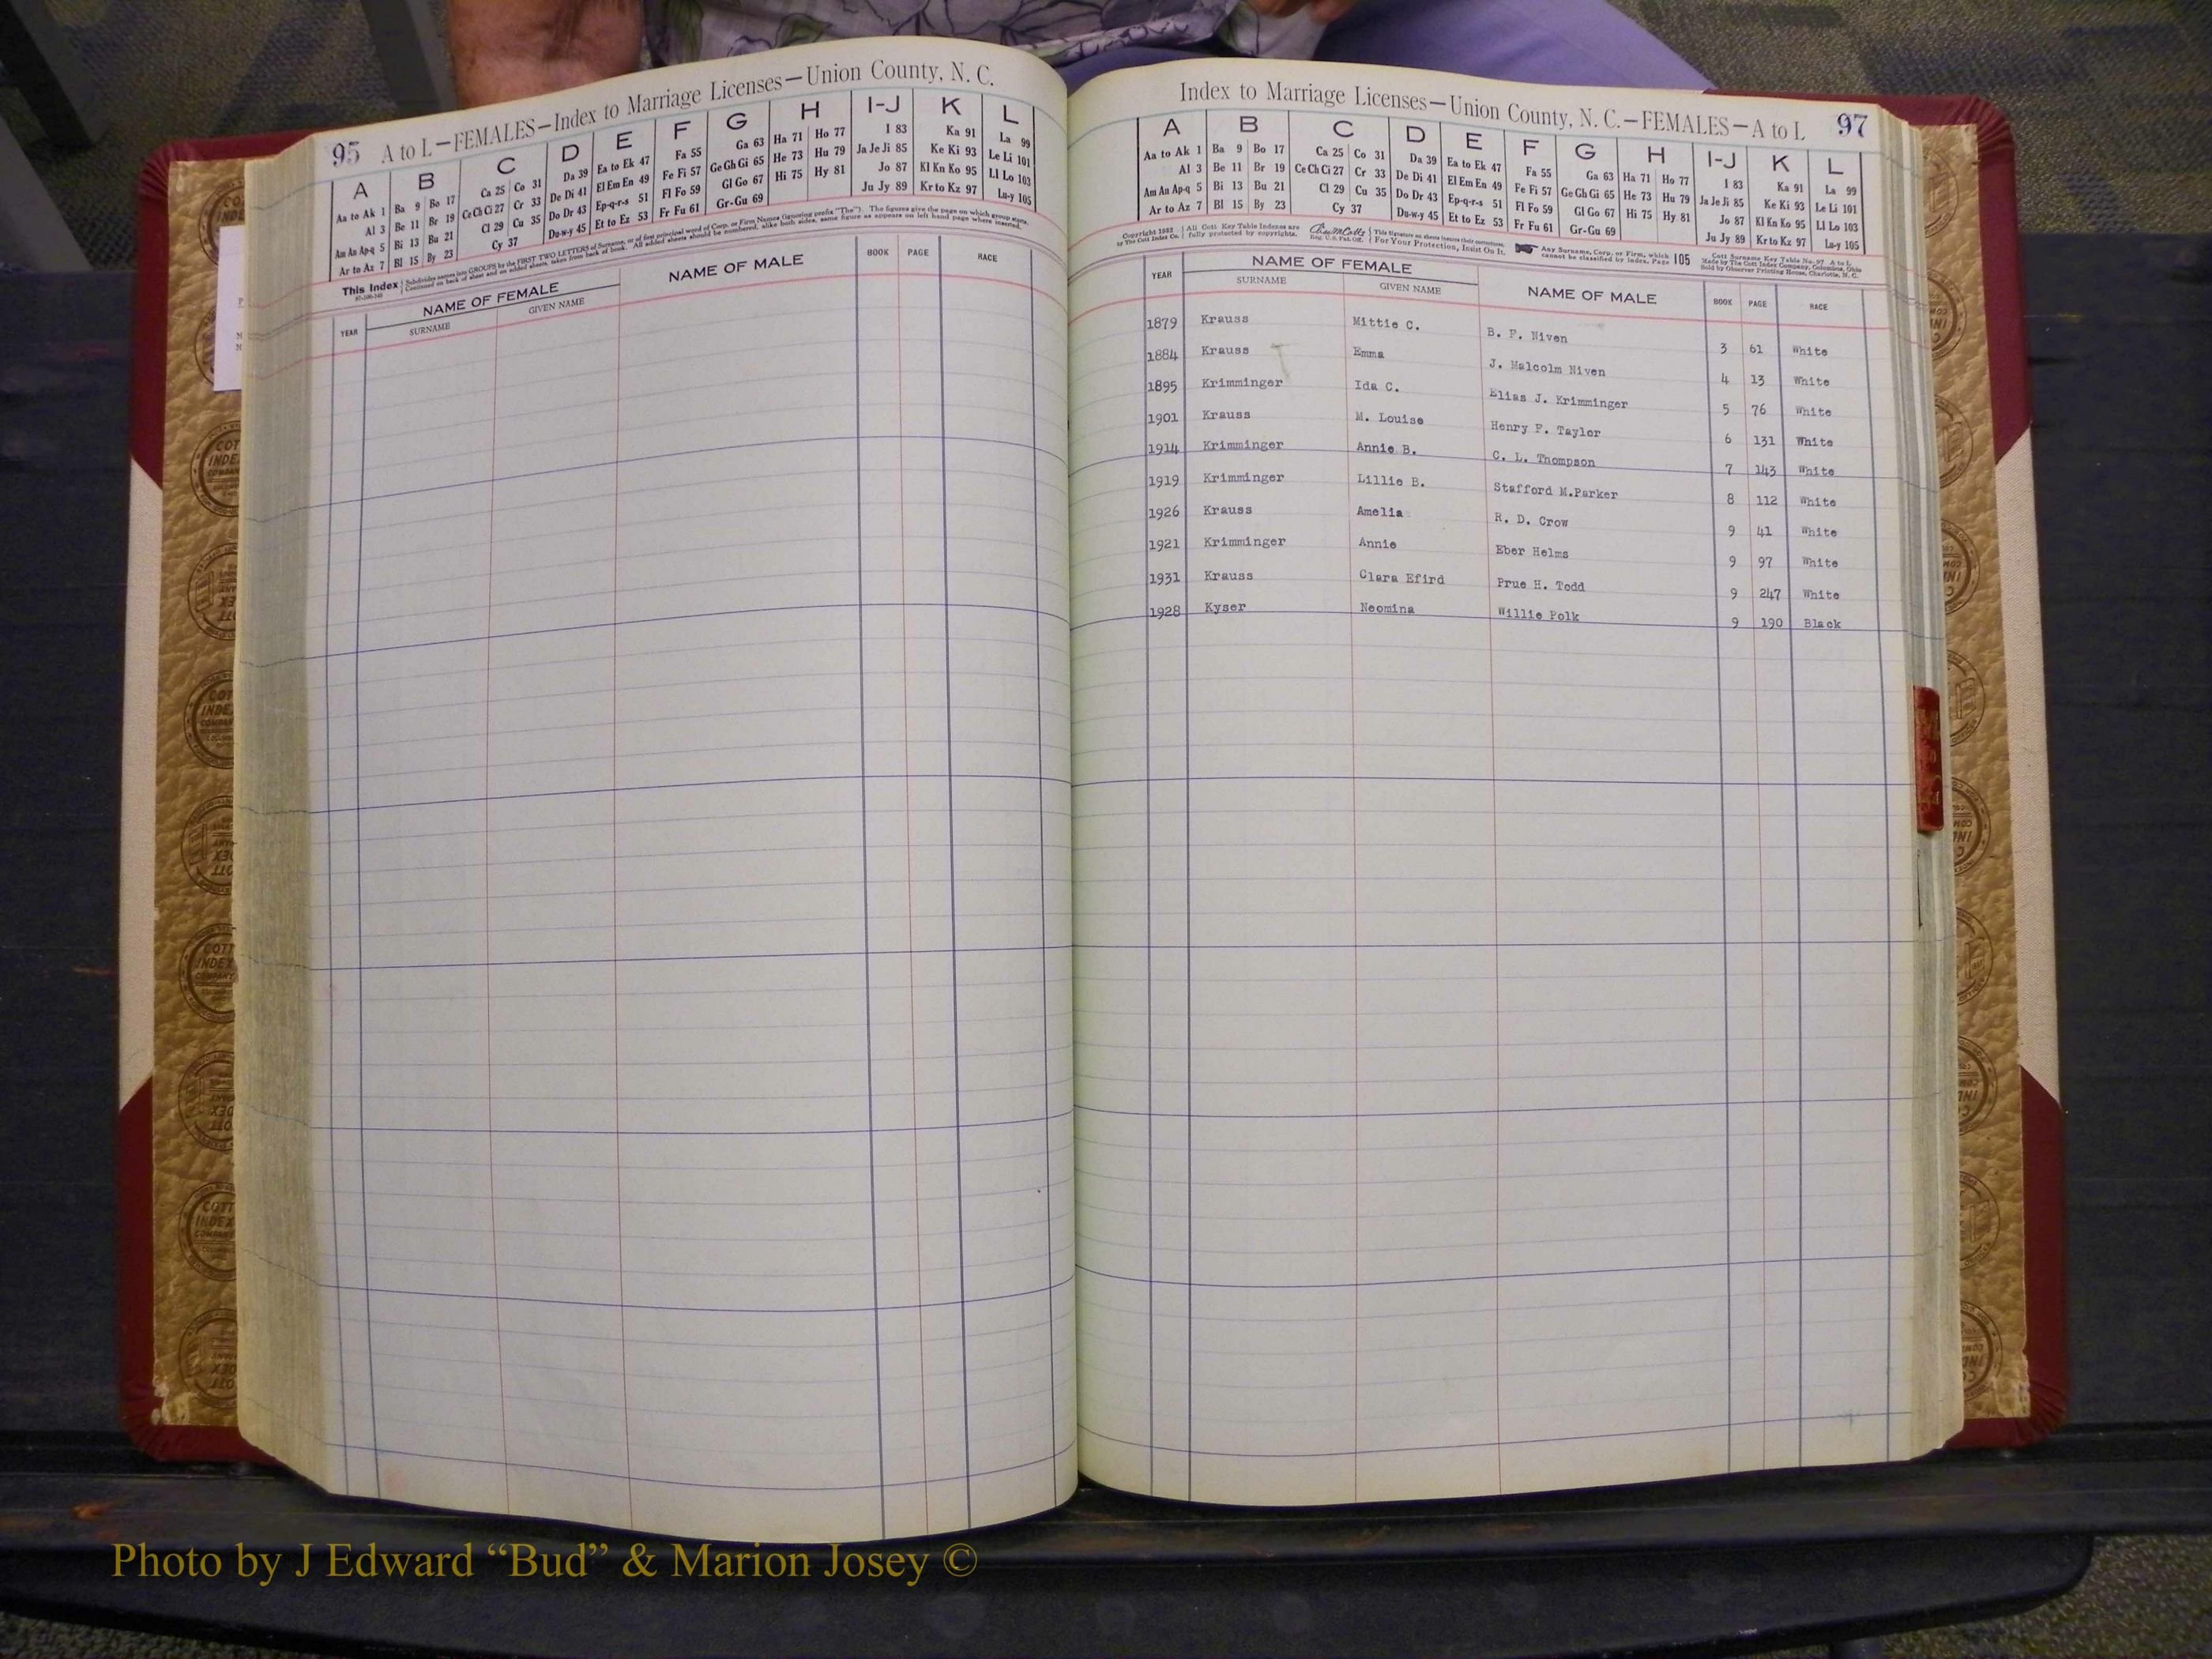 95 A to L—FEMALES—Index to Marriage Licenses—Union County, N. C.
A B C D E F G H I-J K L
Aa to Ak 1 Ba 9 Bo 17 Ca 25 Co 31 Da 39 Ea to Ek 47 Fa 55 Ga 63 Ha 71 Ho 77 I 83 Ka 91 La 99
Al 3 Be 11 Br 19 Ce Ch Ci 27 Cr 33 De Di 41 El Em En 49 Fe Fi 57 Ge Gh Gi 65 He 73 Hu 79 Ja Je Ji 85 Ke Ki 93 Le Li 101
Am An Ap-q 5 Bi 13 Bu 21 Cl 29 Cu 35 Do Dr 43 Ep-q-r-s 51 Fl Fo 59 Gl Go 67 Hi 75 Hy 81 Jo 87 Kl Kn Ko 95 Ll Lo 103
Ar to Az 7 Bl 15 By 23 Cy 37 Du-w-y 45 Et to Ez 53 Fr Fu 61 Gr-Gu 69 Ju Jy 89 Kr to Kz 97 Lu-y 105
This Index Subdivides names into GROUPS by the FIRST TWO LETTERS of Surname, or of first principal word of Corp. or Firm Names (ignoring prefix "The"). The figures give the page on which group starts.
Continued on back of sheet and on added sheets, taken from back of book. All added sheets should be numbered, alike both sides, same figure as appears on left hand page where inserted.
YEAR NAME OF FEMALE NAME OF MALE BOOK PAGE RACE
SURNAME GIVEN NAME
Index to Marriage Licenses—Union County, N. C.—FEMALES—A to L 97
A B C D E F G H I-J K L
Aa to Ak 1 Ba 9 Bo 17 Ca 25 Co 31 Da 39 Ea to Ek 47 Fa 55 Ga 63 Ha 71 Ho 77 I 83 Ka 91 La 99
Al 3 Be 11 Br 19 Ce Ch Ci 27 Cr 33 De Di 41 El Em En 49 Fe Fi 57 Ge Gh Gi 65 He 73 Hu 79 Ja Je Ji 85 Ke Ki 93 Le Li 101
Am An Ap-q 5 Bi 13 Bu 21 Cl 29 Cu 35 Do Dr 43 Ep-q-r-s 51 Fl Fo 59 Gl Go 67 Hi 75 Hy 81 Jo 87 Kl Kn Ko 95 Ll Lo 103
Ar to Az 7 Bl 15 By 23 Cy 37 Du-w-y 45 Et to Ez 53 Fr Fu 61 Gr-Gu 69 Ju Jy 89 Kr to Kz 97 Lu-y 105
All Cott Key Table Indexes are This Signature on sheets insures their correctness. Any Surname, Corp. or Firm, which
by The Cott Index Co. fully protected by copyrights. Reg. U. S. Pat. Off. For Your Protection, Insist On It. cannot be classified by index, Page 105
Cott Surname Key Table No. 97 A to L
Made by The Cott Index Company, Columbus, Ohio
Sold by Observer Printing House, Charlotte, N. C.
YEAR NAME OF FEMALE NAME OF MALE BOOK PAGE RACE
SURNAME GIVEN NAME
1879 Krauss Mittie C. B. F. Niven 3 61 White
1884 Krauss Emma J. Malcolm Niven 4 13 White
1895 Krimminger Ida C. Elias J. Krimminger 5 76 White
1901 Krauss M. Louise Henry F. Taylor 6 131 White
1914 Krimminger Annie B. C. L. Thompson 7 143 White
1919 Krimminger Lillie B. Stafford M.Parker 8 112 White
1926 Krauss Amelia R. D. Crow 9 41 White
1921 Krimminger Annie Eber Helms 9 97 White
1931 Krauss Clara Efird Prue H. Todd 9 247 White
1928 Kyser Neomina Willie Polk 9 190 Black
Photo by J Edward “Bud” & Marion Josey ©